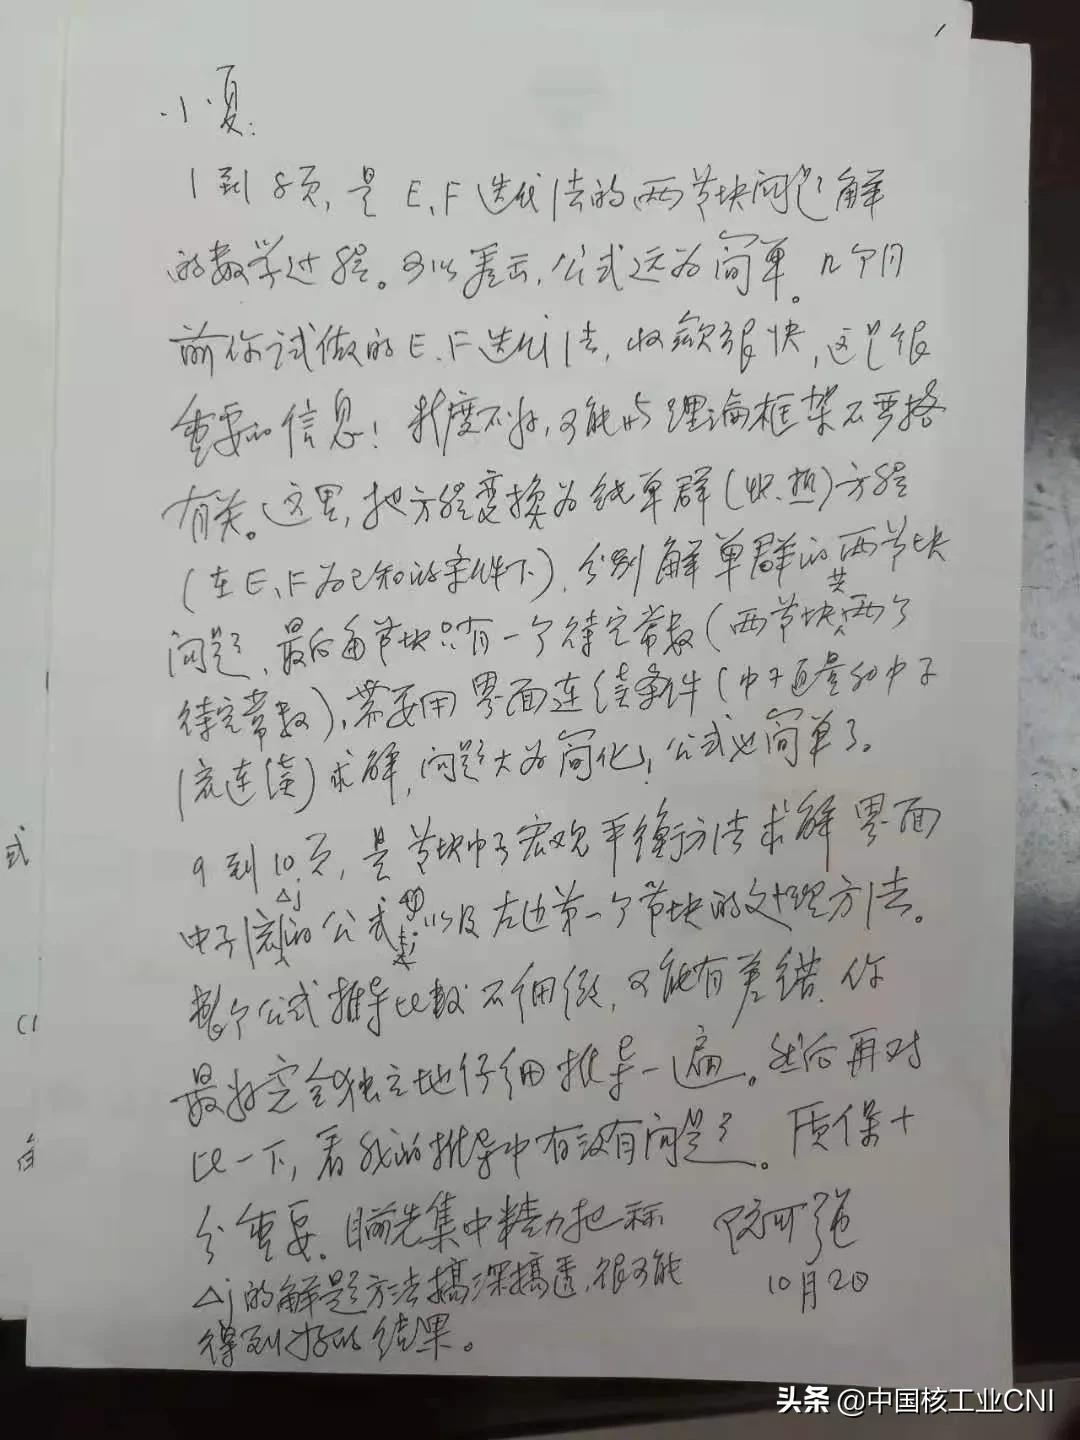 1
小夏:
1到8页,是E、F迭代法的两节块问题解
的数学过程。可以看出,公式远为简单。几个月
前你试做的E、F迭代法,收敛很快,这是很
重要的信息!精度不好,可能与理论框架不严格
有关。这里,把方程变换为纯单群(快、热)方程
(在E、F为已知的条件下),分别解单群的两节块
问题,最后每节块只有一个待定常数(两节块共两个
待定常数),需要用界面连续条件(中子通量和中子
流连续)求解,问题大为简化,公式也简单了。
9到10页,是节块中子宏观平衡方法求解界面
中子流Δj的公式,以及左边第一个节块的处理方法。
整个公式推导比较不细微,可能有差错,你
最好完全独立地仔细推导一遍。然后再对
比一下,看我的推导中有没有问题。质保十
分重要。目前先集中精力把一种
Δj的解题方法搞深搞透,很可能
得到好的结果。
阮可强
10月2日
式
头条 @中国核工业CNI